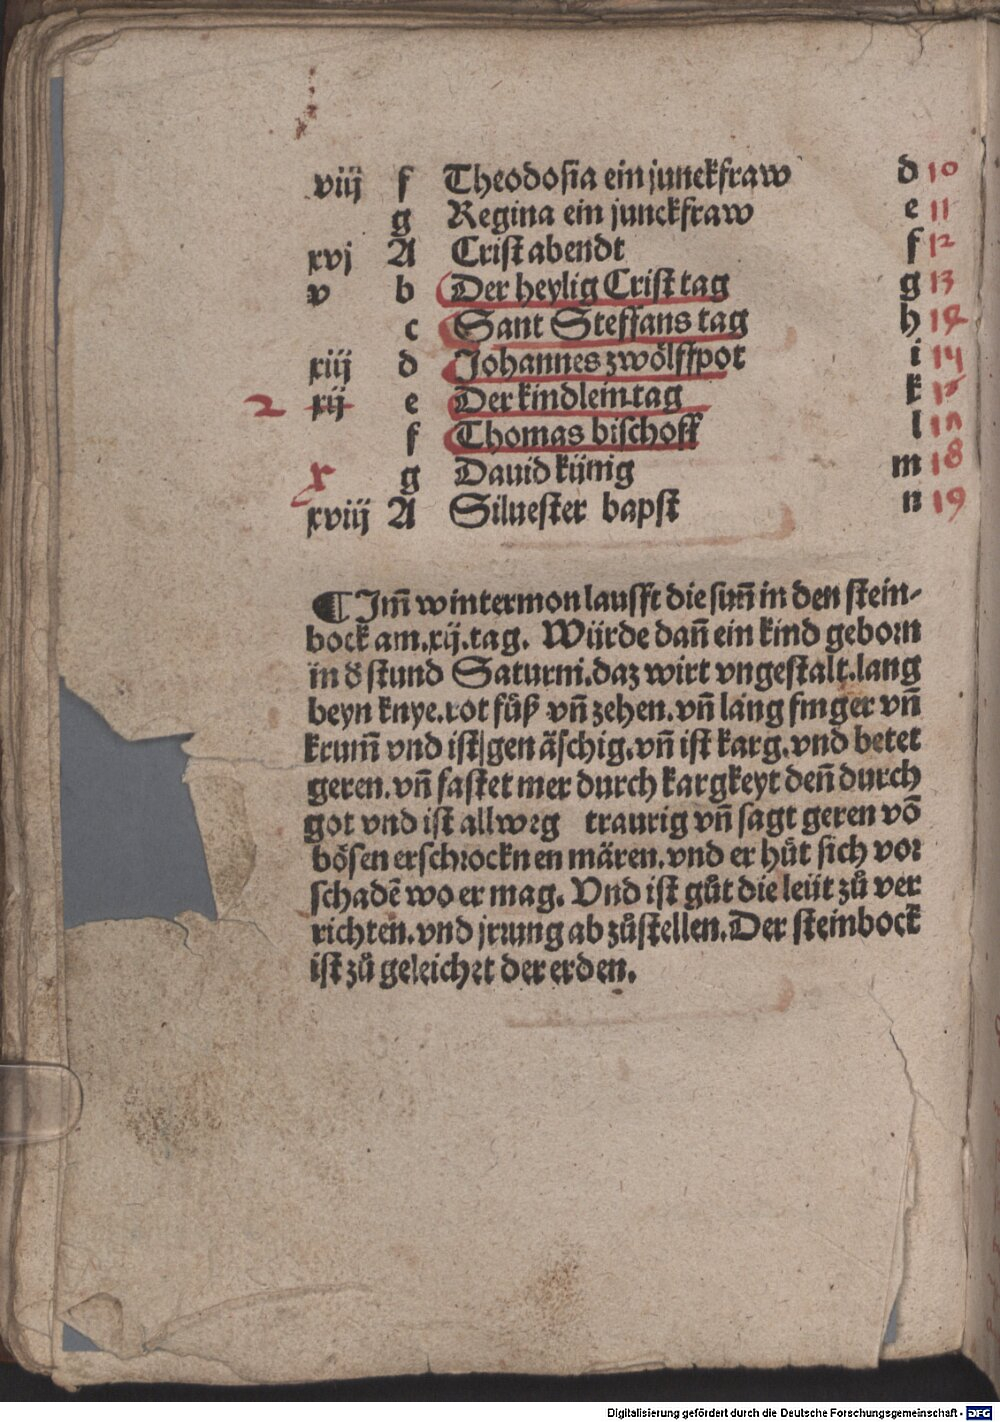 viij f Theodosia ein junckfraw d 10
g Regina ein junckfraw e 11
xvj A Crist abendt f 12
v b Der heylig Crist tag g 13
c Sant Steffans tag h 14
xiij d Johannes zwölffpot i
2 xij e Der kindlein tag k
f Thomas bischoff l
x g Dauid künig m 18
xviij A Siluester bapst n 19
¶ Jm̄ wintermon laufft die sun̄ in den stein-
bock am.xij.tag. Würde dan̄ ein kind geborn
in d͛ stund Saturni.daz wirt vngestalt.lang
beyn knye.rot fůß vn̄ zehen.vn̄ lang finger vn̄
krum̄ vnd ist gen äschig.vn̄ ist karg.vnd betet
geren.vn̄ fastet mer durch kargkeyt den̄ durch
got vnd ist allweg traurig vn̄ sagt geren vō
bösen erschrocknen mären.vnd er hůt sich vor
schadē wo er mag. Vnd ist gůt die leüt zů ver
richten.vnd jrrung ab zůstellen.Der steinbock
ist zů geleichet der erden.
Digitalisierung gefördert durch die Deutsche Forschungsgemeinschaft - DFG